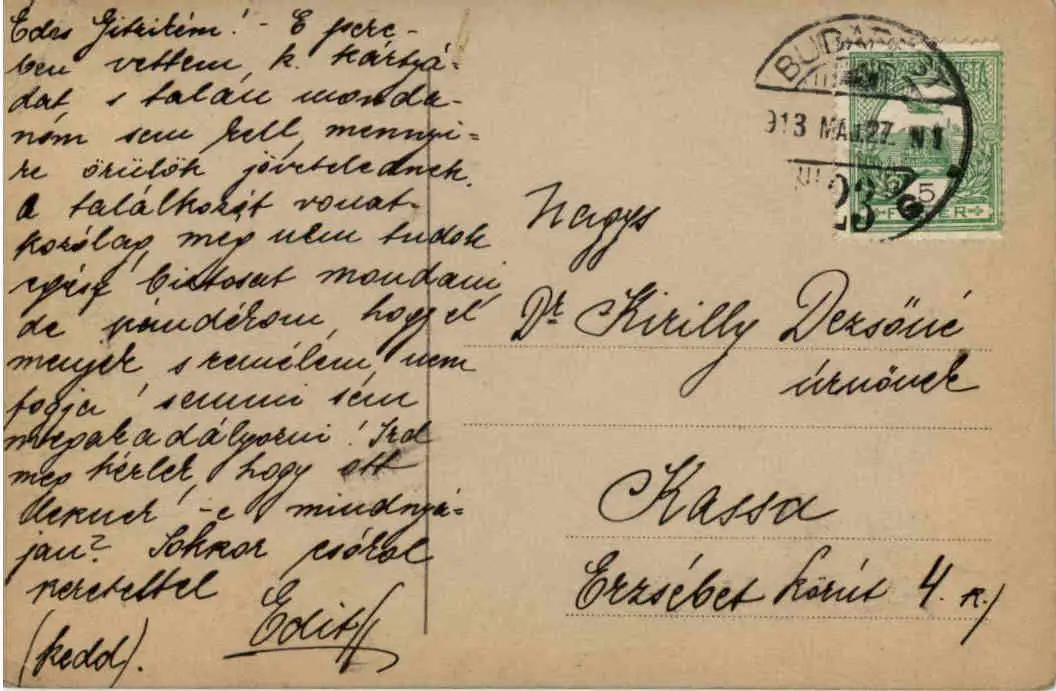 Édes Gitzikém! - E perc-
ben vettem k. kártyá-
dat s talán monda-
nóm sem kell, mennyi-
re örülök jövetelednek.
A találkozót vonat-
kozólag, még nem tudok
egész biztosat mondani
de szándékom, hogy el
menjek s remélem, nem
fogja semmi sem
megakadályozni! Írd
meg kérlek, hogy ott
lesznek-e mindnyá-
jan? Sokszor csókol
szeretettel
Edit
(kedd).
BUDAPEST
913 MÁJ 27. N1
23
5
FILLER
Nagys
Dr Kirilly Dezsőné
úrnőnek
Kassa
Erzsébet körút 4. sz.)